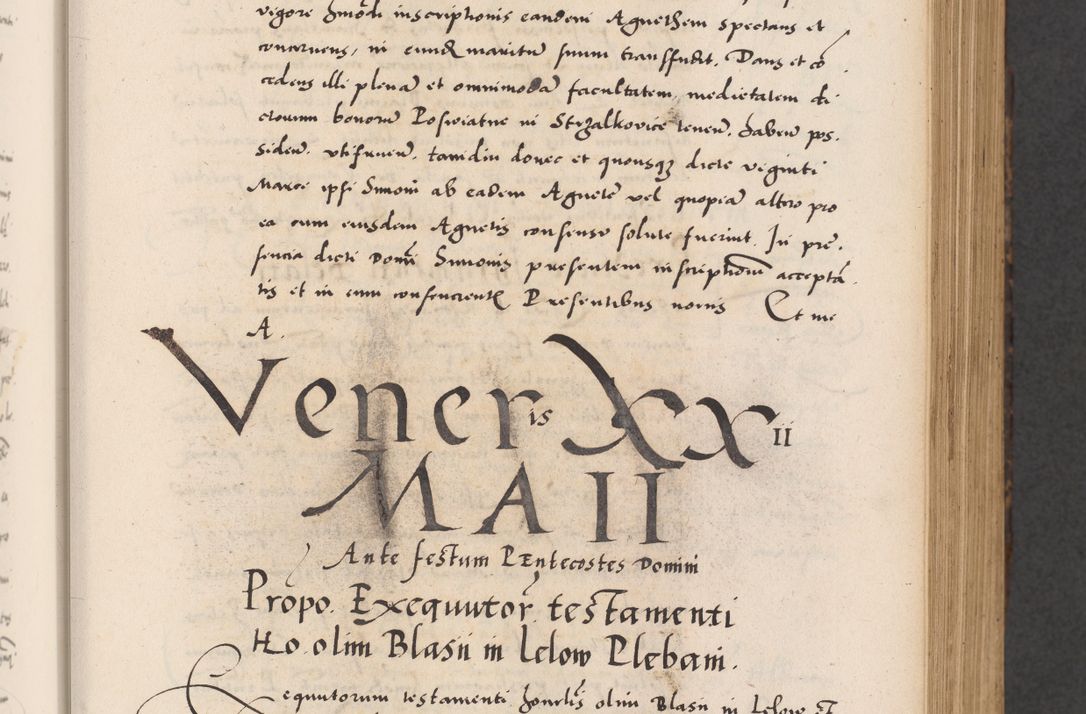 vigore hmõi inscriptionis eandem Agnethem spectans et
concernens, in eundẽ maritũ suum transffudit. Dans et cõ
cedens illi plenã et omnimodã facultatem, medietatem di
ctorum bonorũ Poswiatne in Strzalkovice tenenꝰ. habenꝰ pos.
sidenꝰ. vtifruenꝰ. tamdiu donec et quousqȝ dicte viginti
Marce ipsi Simoni ab eadem Agnete vel quopiã altero pro
ea cum eiusdem Agnetis consensu solute fuerint. In pre.
sencia dicti Domĩ Simonis presentem inscriptionẽ acceptã.
tis et in eum consencientꝭ Presentibus nomis Et me
A.
Veneris XXII
MAII
Ante festum PEntecostes Domini
Propo. Exequutor̃ testamenti
Ho. olim Blasii in Lelow Plebani.
equutorum testamenti honõlis olim Blasii in Lelow